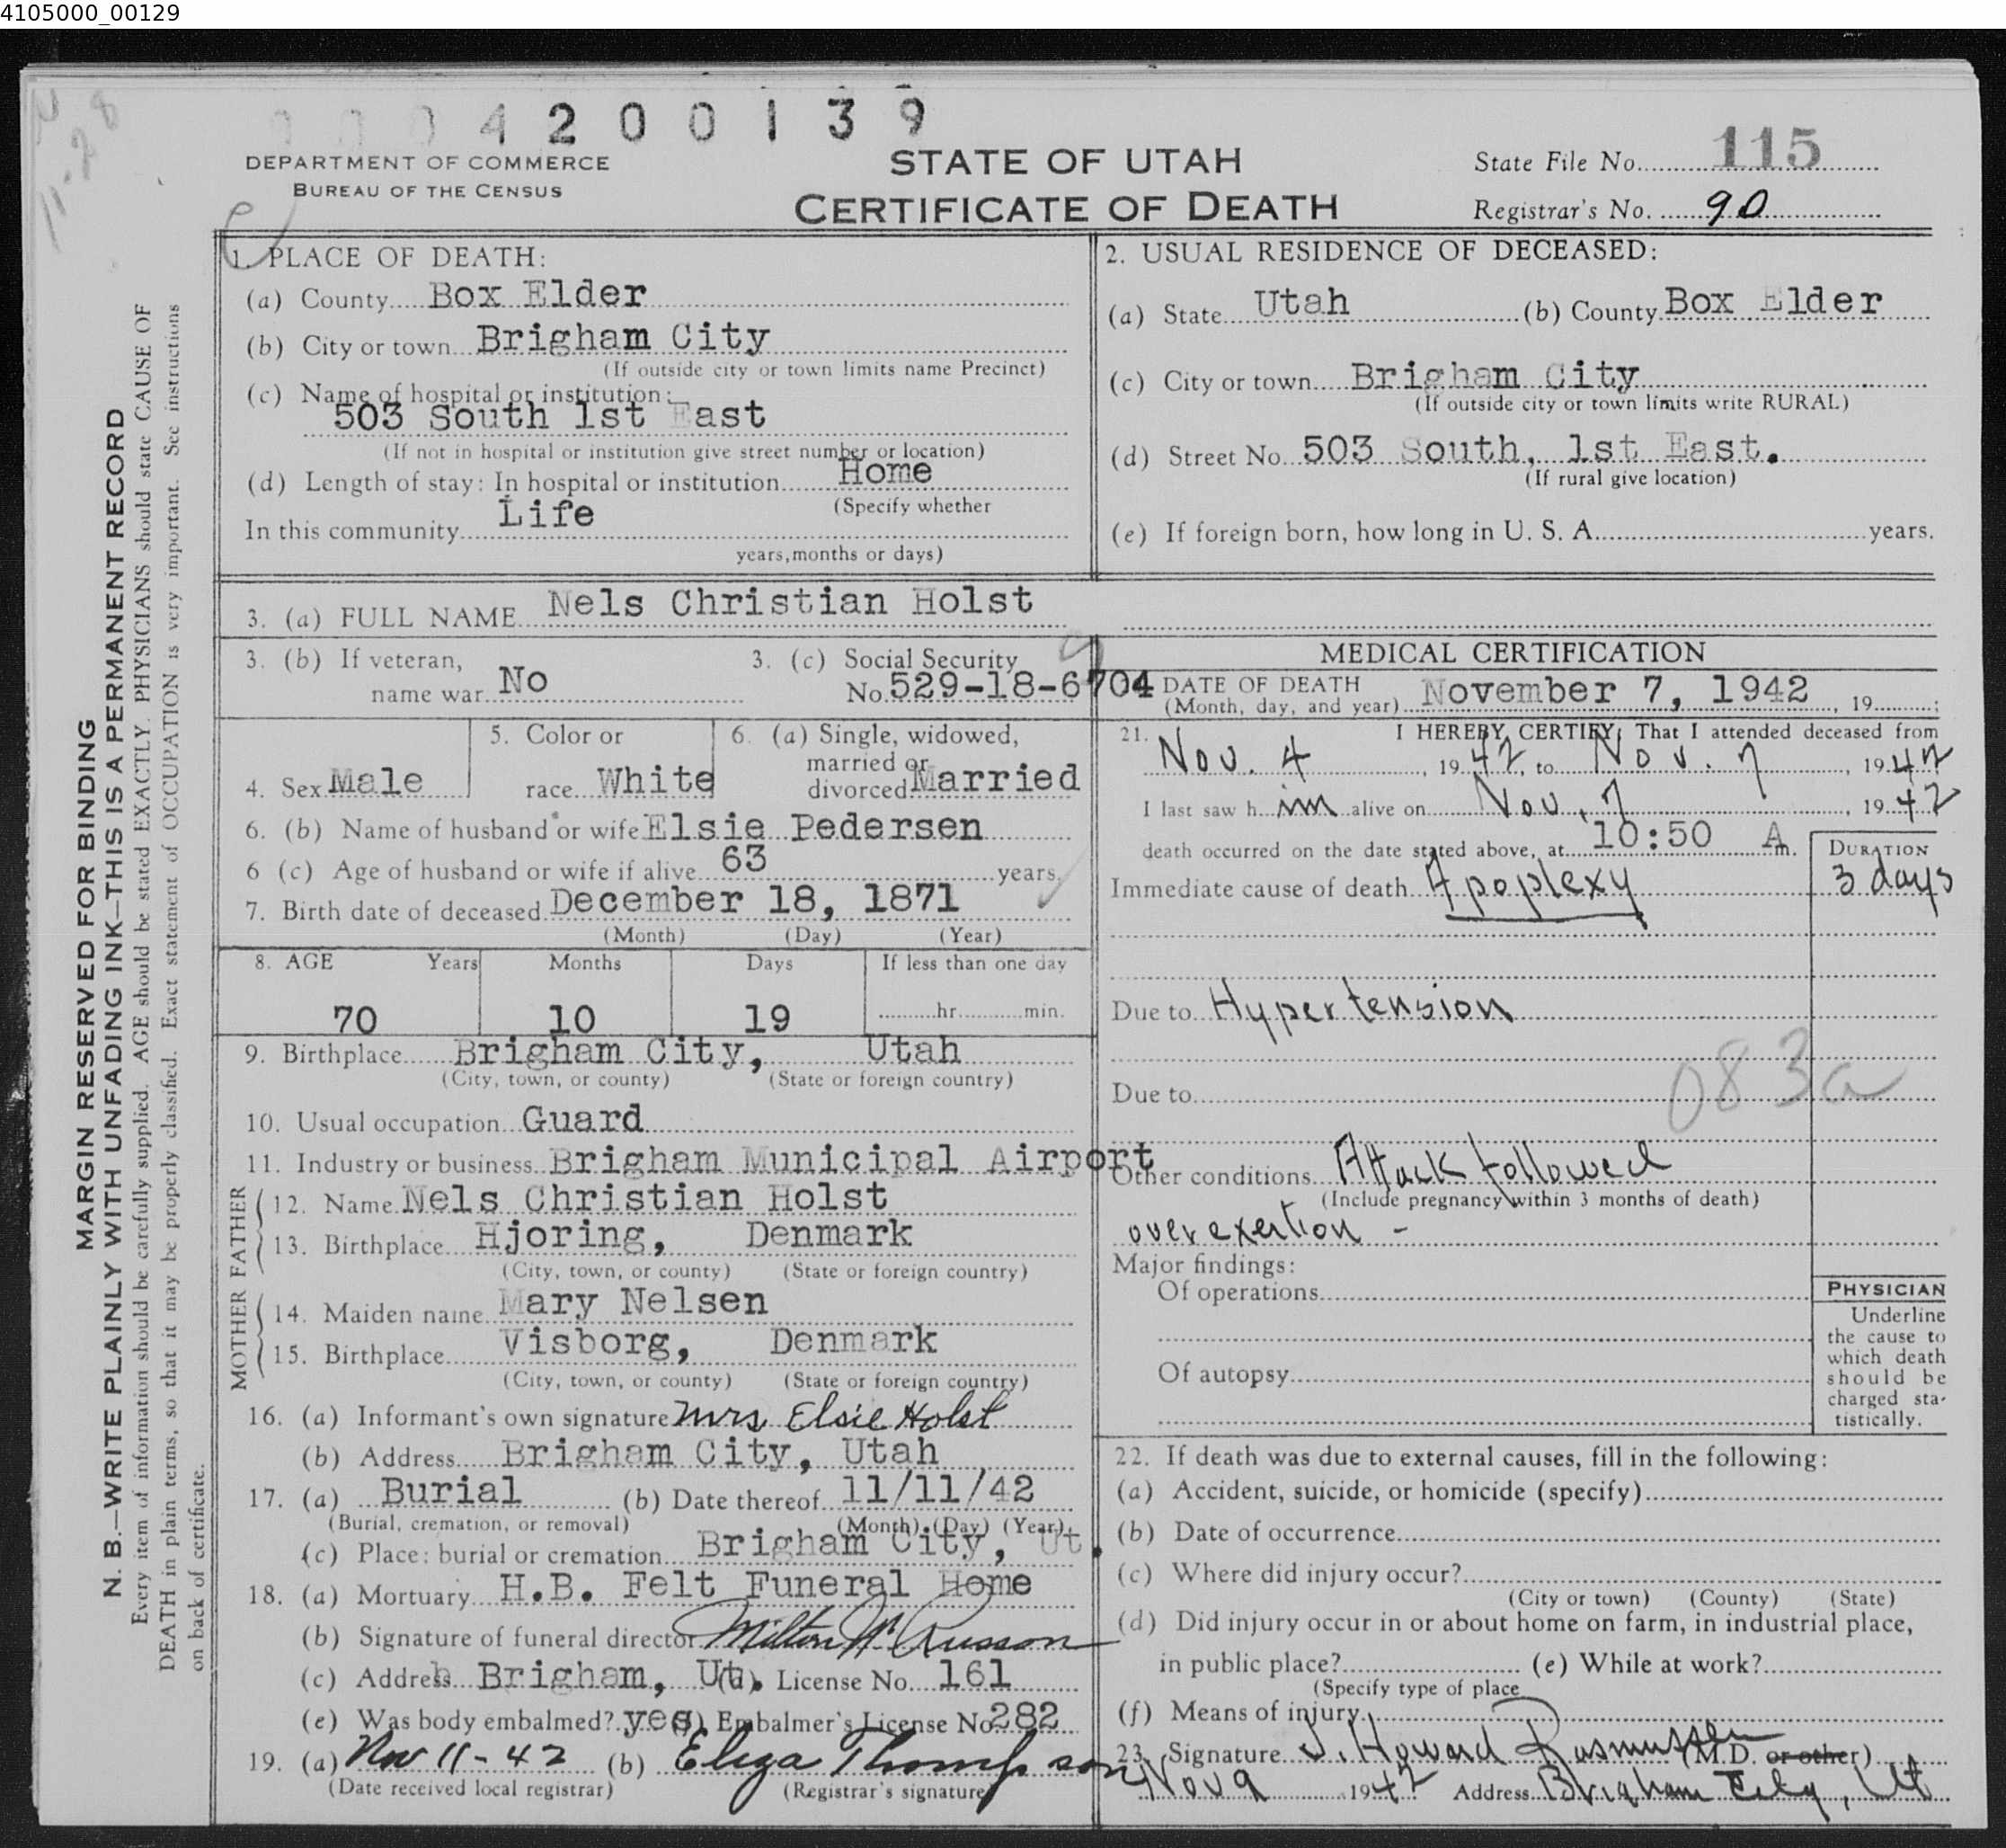 4105000_00129
0004200139
DEPARTMENT OF COMMERCE
BUREAU OF THE CENSUS
STATE OF UTAH
CERTIFICATE OF DEATH
State File No. 115
Registrar's No. 90
11-28
MARGIN RESERVED FOR BINDING
N. B.—WRITE PLAINLY WITH UNFADING INK—THIS IS A PERMANENT RECORD
Every item of information should be carefully supplied. AGE should be stated EXACTLY. PHYSICIANS should state CAUSE OF
DEATH in plain terms, so that it may be properly classified. Exact statement of OCCUPATION is very important. See instructions
on back of certificate.
1. PLACE OF DEATH:
(a) County Box Elder
(b) City or town Brigham City
(If outside city or town limits name Precinct)
(c) Name of hospital or institution:
503 South 1st East
(If not in hospital or institution give street number or location)
(d) Length of stay: In hospital or institution Home
(Specify whether
In this community Life
years, months or days)
2. USUAL RESIDENCE OF DECEASED:
(a) State Utah (b) County Box Elder
(c) City or town Brigham City
(If outside city or town limits write RURAL)
(d) Street No. 503 South, 1st East.
(If rural give location)
(e) If foreign born, how long in U. S. A. years.
3. (a) FULL NAME Nels Christian Holst
3. (b) If veteran,
name war No
3. (c) Social Security
No. 529-18-6704
4. Sex Male
5. Color or
race White
6. (a) Single, widowed,
married or
divorced Married
6. (b) Name of husband or wife Elsie Pedersen
6 (c) Age of husband or wife if alive 63 years.
7. Birth date of deceased December 18, 1871
(Month) (Day) (Year)
8. AGE Years Months Days If less than one day
70 10 19 hr. min.
9. Birthplace Brigham City, Utah
(City, town, or county) (State or foreign country)
10. Usual occupation Guard
11. Industry or business Brigham Municipal Airport
FATHER
12. Name Nels Christian Holst
13. Birthplace Hjoring, Denmark
(City, town, or county) (State or foreign country)
MOTHER
14. Maiden name Mary Nelsen
15. Birthplace Visborg, Denmark
(City, town, or county) (State or foreign country)
16. (a) Informant's own signature Mrs Elsie Holst
(b) Address Brigham City, Utah
17. (a) Burial (b) Date thereof 11/11/42
(Burial, cremation, or removal) (Month) (Day) (Year)
(c) Place: burial or cremation Brigham City, Ut.
18. (a) Mortuary H.B. Felt Funeral Home
(b) Signature of funeral director Milton Russon
(c) Address Brigham, Ut. (d) License No. 161
(e) Was body embalmed? yes (f) Embalmer's License No. 282
19. (a) Nov 11-42 (b) Eliza Thompson
(Date received local registrar) (Registrar's signature)
MEDICAL CERTIFICATION
DATE OF DEATH
(Month, day, and year) November 7, 1942, 19 ;
21. I HEREBY CERTIFY: That I attended deceased from
Nov. 4, 1942, to Nov. 7, 1942
I last saw him alive on Nov. 7 1942
death occurred on the date stated above, at 10:50 A m.
DURATION
Immediate cause of death Apoplexy 3 days
Due to Hypertension
083a
Due to
Other conditions Attack followed
(Include pregnancy within 3 months of death)
overexertion -
Major findings:
Of operations
Of autopsy
PHYSICIAN
Underline
the cause to
which death
should be
charged sta-
tistically.
22. If death was due to external causes, fill in the following:
(a) Accident, suicide, or homicide (specify)
(b) Date of occurrence
(c) Where did injury occur?
(City or town) (County) (State)
(d) Did injury occur in or about home on farm, in industrial place,
in public place? (e) While at work?
(Specify type of place
(f) Means of injury
23. Signature J. Howard Rasmussen (M.D. or other)
Nov 9 1942 Address Brigham City, Ut